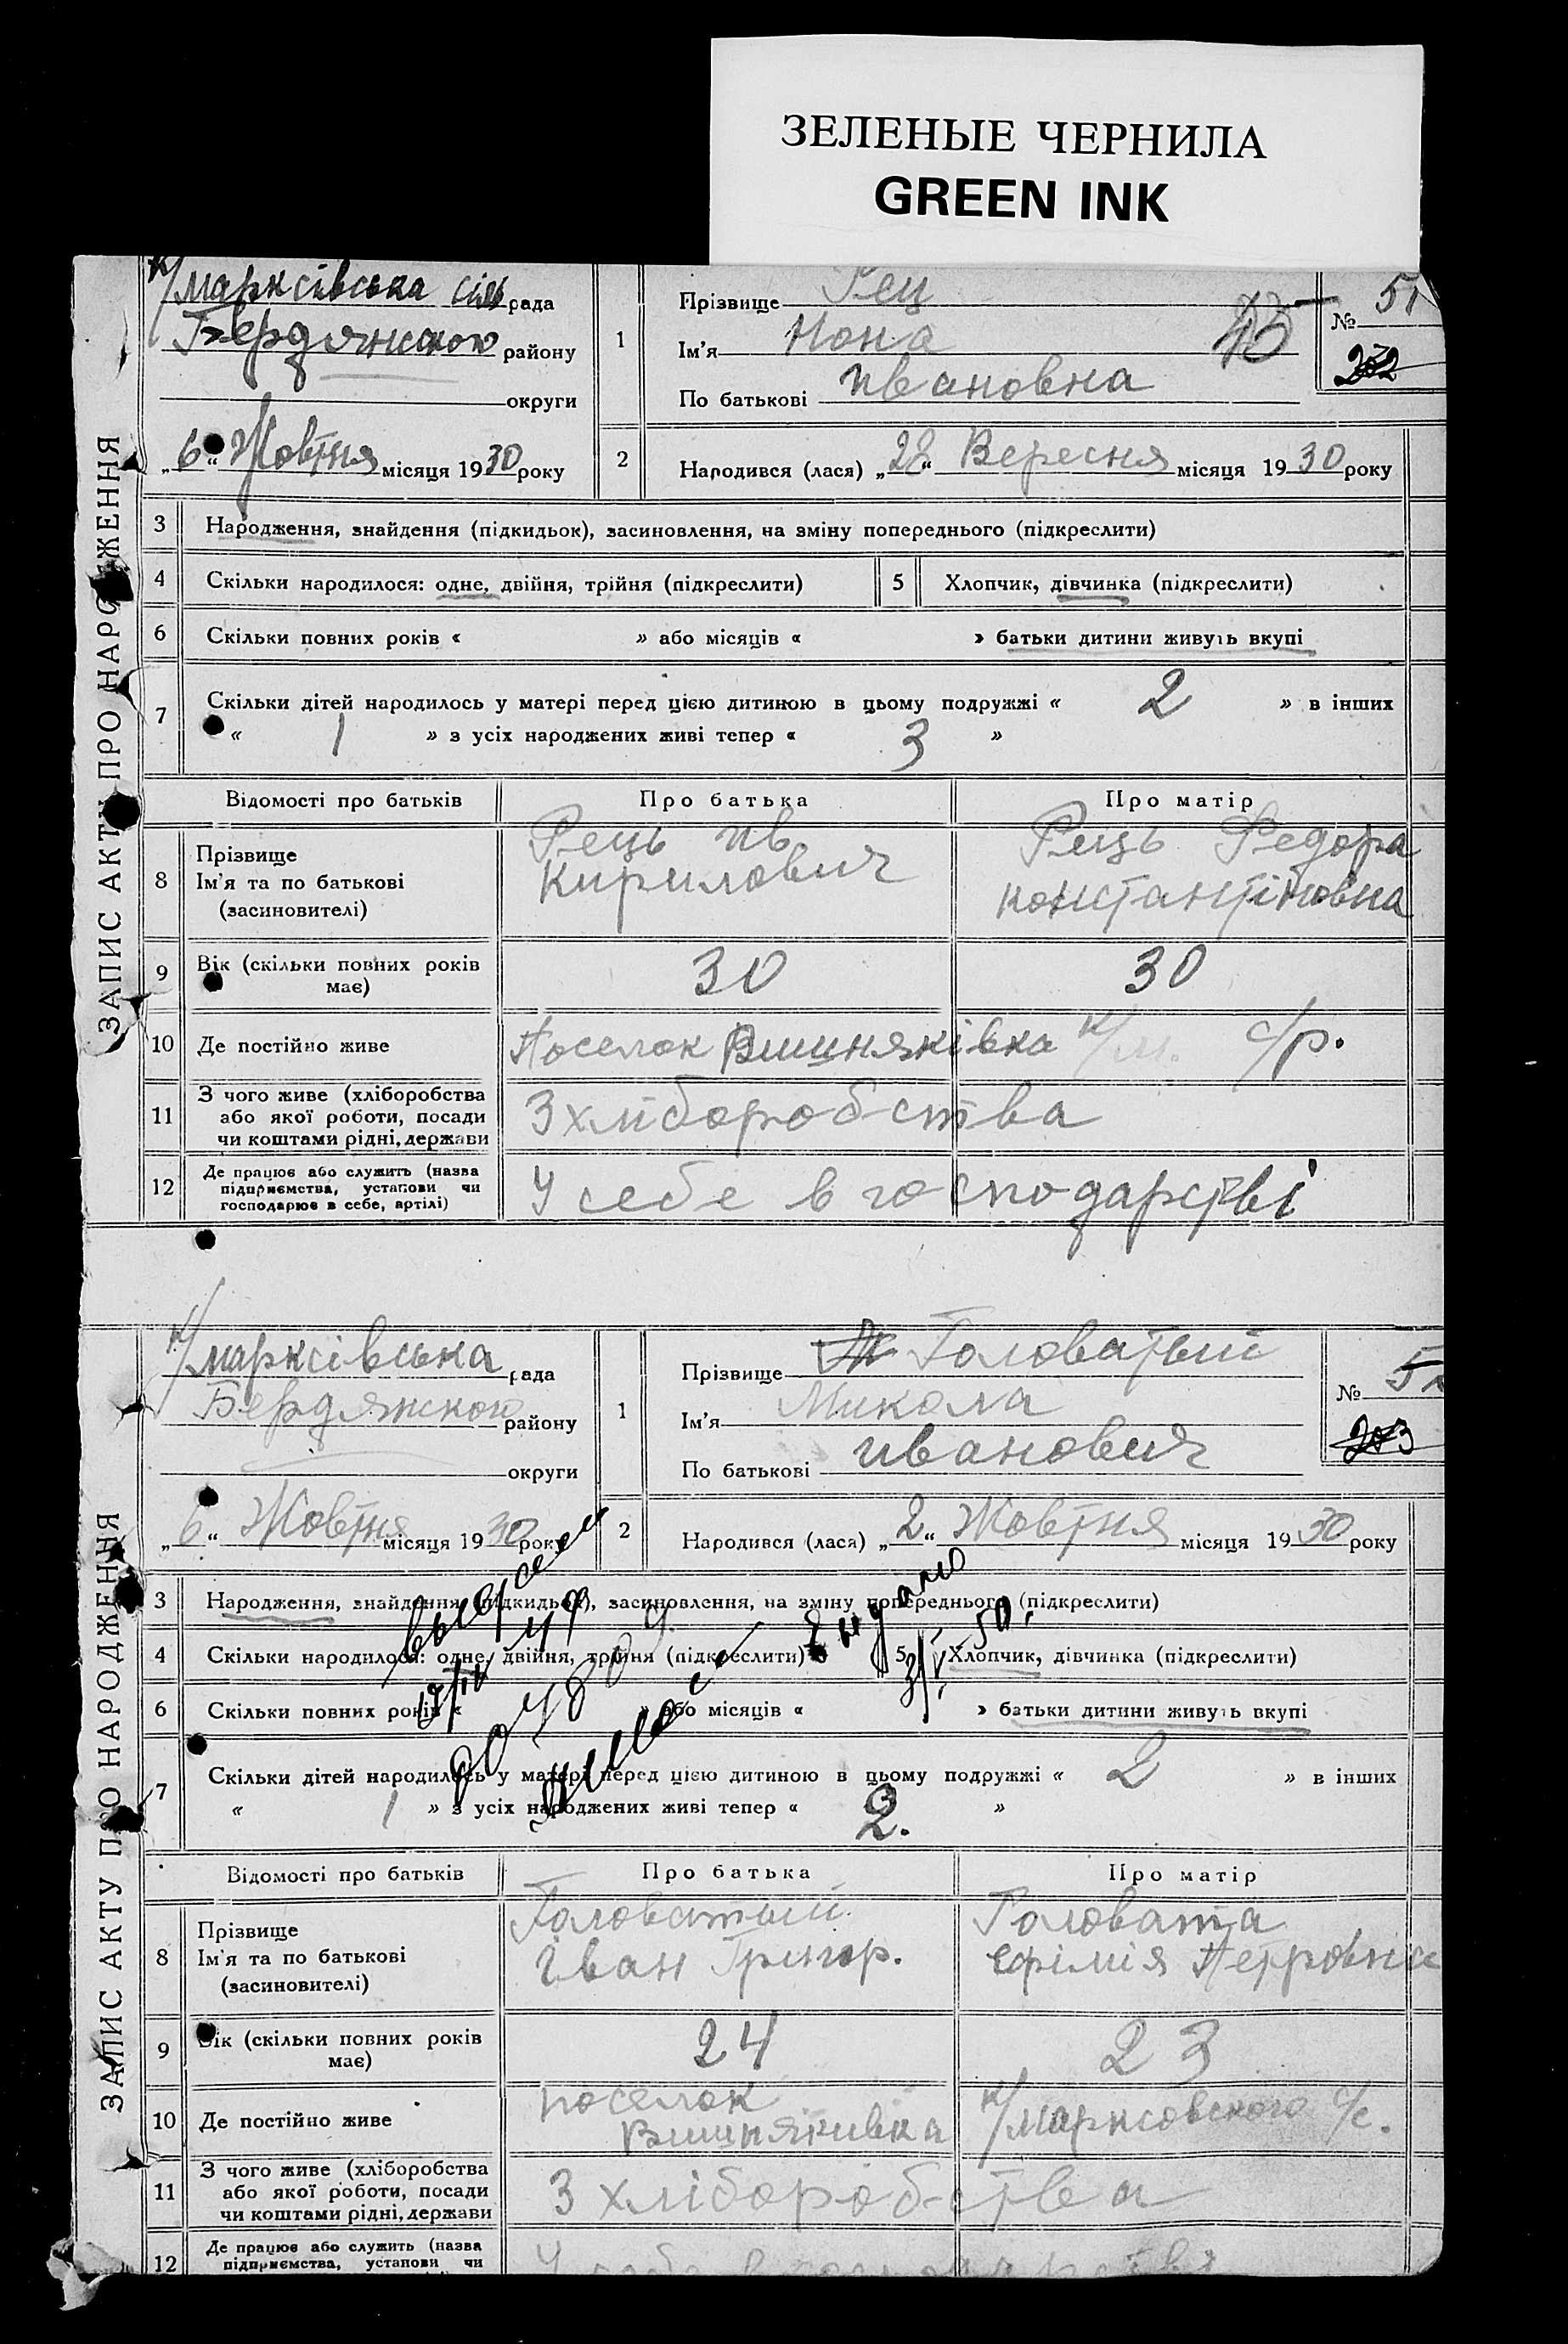 ЗЕЛЕНЫЕ ЧЕРНИЛА
GREEN INK
ЗАПИС АКТУ ПРО НАРОДЖЕННЯ
К/Марксівська сіль рада
Бердянского району
округи
„6“ Жовтня місяця 1930 року
1
Прізвище Рец
Ім'я Нона
По батькові Ивановна
№ 51
202
2
Народився (лася) „28“ Вересня місяця 1930 року
3 Народження, знайдення (підкидьок), засиновлення, на зміну попереднього (підкреслити)
4 Скільки народилося: одне, двійня, трійня (підкреслити) 5 Хлопчик, дівчинка (підкреслити)
6 Скільки повних років « » або місяців « » батьки дитини живуть вкупі
7 Скільки дітей народилось у матері перед цією дитиною в цьому подружжі « 2 » в інших
« 1 » з усіх народжених живі тепер « 3 »
Відомості про батьків Про батька Про матір
8 Прізвище
Ім'я та по батькові
(засиновителі)
Рець Ив
Кирилович
Рець Федора
Константіновна
9 Вік (скільки повних років
має)
30 30
10 Де постійно живе Поселок Вишняківка К/М. С/р.
11 З чого живе (хліборобства
або якої роботи, посади
чи коштами рідні, держави
З хліборобства
12 Де працює або служить (назва
підприємства, установи чи
господарює в себе, артілі)
У себе в господарстві
ЗАПИС АКТУ ПРО НАРОДЖЕННЯ
К/Марксівська рада
Бердянского району
округи
„6“ Жовтня місяця 1930 року
1
Прізвище Головатый
Ім'я Микола
По батькові Иванович
№ 52
203
2
Народився (лася) „2“ Жовтня місяця 1930 року
3 Народження, знайдення (підкидьок), засиновлення, на зміну попереднього (підкреслити)
4 Скільки народилося: одне, двійня, трійня (підкреслити) 5 Хлопчик, дівчинка (підкреслити)
6 Скільки повних років « » або місяців « » батьки дитини живуть вкупі
7 Скільки дітей народилось у матері перед цією дитиною в цьому подружжі « 2 » в інших
« 1 » з усіх народжених живі тепер « 2. »
Відомості про батьків Про батька Про матір
8 Прізвище
Ім'я та по батькові
(засиновителі)
Головатый
Іван Григор.
Головата
Єфімія Петровна
9 Вік (скільки повних років
має)
24 23
10 Де постійно живе
поселок
Вишняківка К/Марксовского С/с.
11 З чого живе (хліборобства
або якої роботи, посади
чи коштами рідні, держави
З хліборобства
12 Де працює або служить (назва
підприємства, установи чи